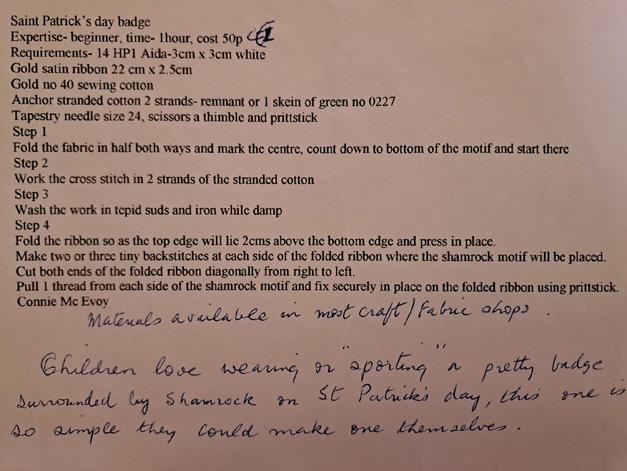 Saint Patrick's day badge
Expertise- beginner, time- 1hour, cost 50p £1
Requirements- 14 HP1 Aida-3cm x 3cm white
Gold satin ribbon 22 cm x 2.5cm
Gold no 40 sewing cotton
Anchor stranded cotton 2 strands- remnant or 1 skein of green no 0227
Tapestry needle size 24, scissors a thimble and prittstick
Step 1
Fold the fabric in half both ways and mark the centre, count down to bottom of the motif and start there
Step 2
Work the cross stitch in 2 strands of the stranded cotton
Step 3
Wash the work in tepid suds and iron while damp
Step 4
Fold the ribbon so as the top edge will lie 2cms above the bottom edge and press in place.
Make two or three tiny backstitches at each side of the folded ribbon where the shamrock motif will be placed.
Cut both ends of the folded ribbon diagonally from right to left.
Pull 1 thread from each side of the shamrock motif and fix securely in place on the folded ribbon using prittstick.
Connie Mc Evoy
Materials available in most craft/Fabric shops.
Children love wearing or "sporting" a pretty badge
surrounded by Shamrock on St Patrick's day, this one is
so simple they could make one themselves.